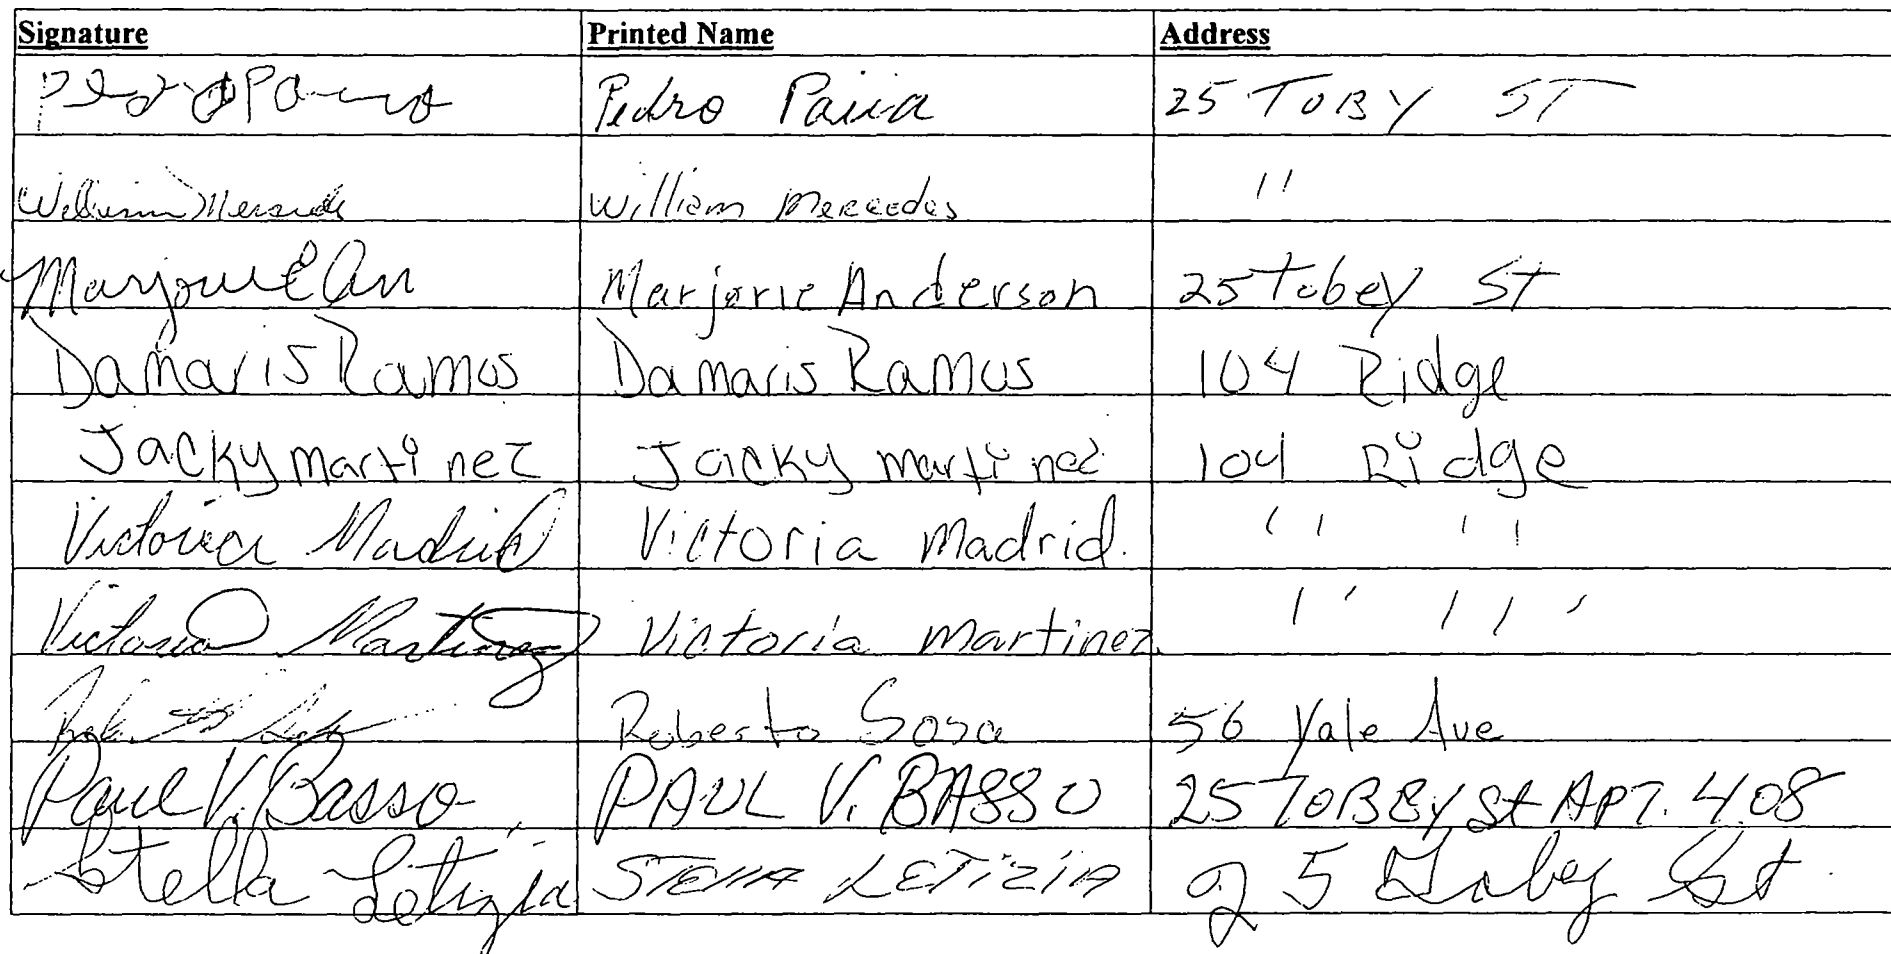 Signature Printed Name Address
Pedro Pedro Paiia 25 TOBY ST
William Mercedes William Mercedes "
Marjorie Marjorie Anderson 25 Tobey ST
Damaris Ramos Damaris Ramos 104 Ridge
Jacky martinez Jacky martinez 104 Ridge
Victoria Madrid Victoria Madrid. " "
Victoria Martinez Victoria Martinez " "
Roberto Sosa 56 Yale Ave
Paul V. Basso PAUL V. BASSO 25 TOBBY St APT. 408
Stella Letizia STELLA LETIZIA 25 Tobey St